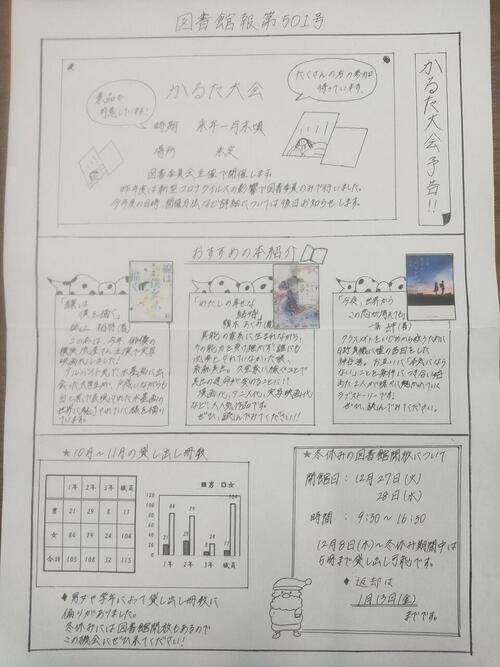 図書館報第501号
かるた大会予告!!
かるた大会
景品も
用意しています!
たくさんの方の参加
待っています。
時期 来年一月末頃
場所 未定
図書委員会主催で開催します。
昨年度は新型コロナウイルスの影響で図書委員のみで行いました。
今年度の日時、開催方法など詳細については後日お知らせします。
おすすめの本紹介
「線は、
僕を描く」
砥上裕將(著)
この本は、今年、俳優の
横浜流星さん主演で実写
映画化しました!
アルバイト先で水墨画に出
会った大学生が、戸惑いながらも
白と黒で表現された水墨画の
世界に魅了されていく様を描い
ています。
「わたしの幸せな
結婚」
顎木あくみ(著)
異能の家系に生まれながら、
その能力を受け継がず、誰にも
必要とされていなかった娘、
斎森美世。久堂家に嫁ぐことで
美世の運命が変わることに!!
漫画化、アニメ化、実写映画化
など、大人気作品です。
ぜひ、読んでみてください!!
「今夜、世界から
この恋が消えても」
一条岬(著)
クラスメイトをいじめから救うために
日野真織に嘘の告白をした
神谷透。お互いに「本気になら
ない」ことを条件につき合い始
めた2人が様々に魅かれていく
ラブストーリーです。
ぜひ、読んでみてください!!
★10月~11月の貸し出し冊数
1年 2年 3年 職員
男 21 29 8 11
女 84 79 24 104
合計 105 108 32 115
■男 □女
120
100
80
60
40
20
0
21 84 29 79 8 24 11 104
1年 2年 3年 職員
◆男女や学年によって貸し出し冊数に
偏りがありました。
冬休みには図書館開放もあるので
この機会にぜひ来てください!
★冬休みの図書館開放について
開館日:12月27日(火)
28日(水)
時間:9:30~16:30
12月8日(木)~冬休み期間中は
5冊まで貸し出し可能です。
◆返却は
1月13日(金)
までです。